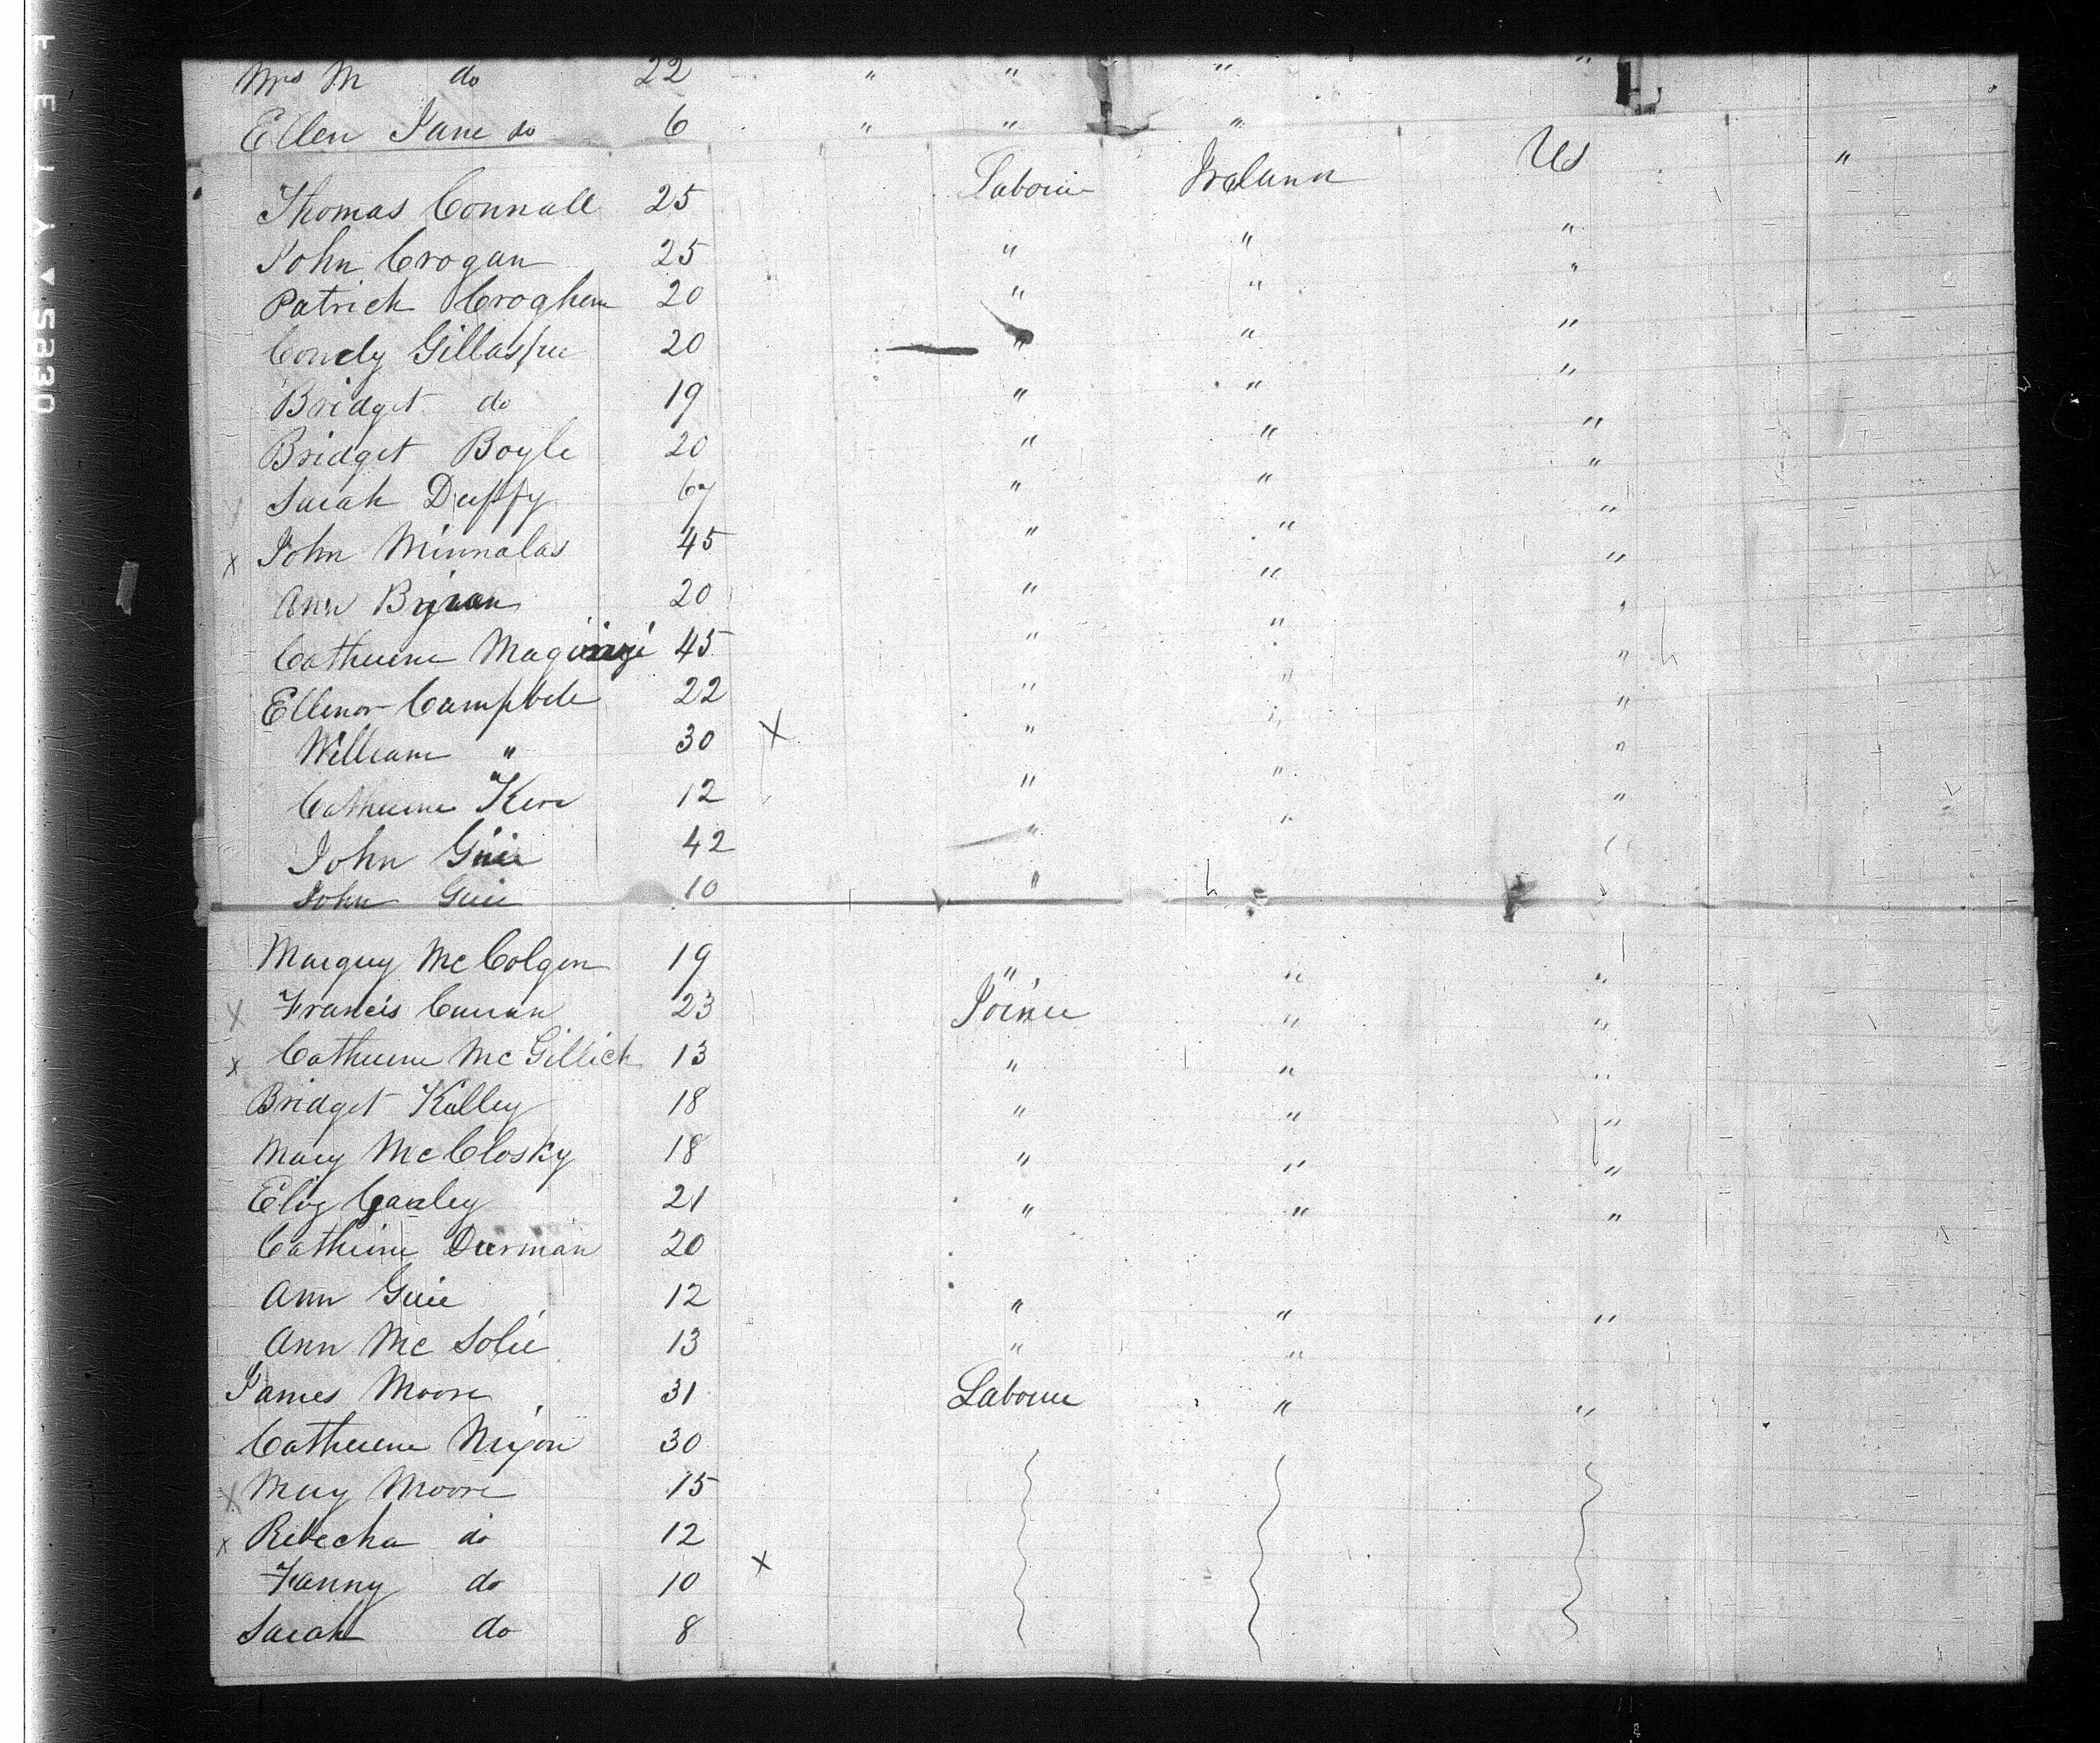 Mrs M do 22 " " " "
Ellen Jane do 6 " " "
Thomas Connall 25 Labourer Ireland US "
John Crogan 25 " " "
Patrick Croghan 20 " " "
Condy Gillaspie 20 " " "
Bridget do 19 " " "
Bridget Boyle 20 " " "
Sarah Duffy 67 " " "
x John Minnalas 45 " " "
Ann 20 " " "
Catherine 45 " " "
Ellenor Campbell 22 " " "
William " 30 X " " "
Catherine Kerr 12 " " "
John 42 " "
John 10 "
McColgen 19 " " "
x Francis Curran 23 Joiner " "
x Catherine McGillick 13 " " "
Bridget Kelley 18 " " "
Mary McClosky 18 " " "
Eliz 21 " " "
Catherine 20
Ann 12 " " "
Ann Mc 13 " "
James Moore 31 Labourer " "
Catherine Nixon 30
x Mary Moore 15
x Rebecha do 12
Fanny do 10 x
Sarah do 8